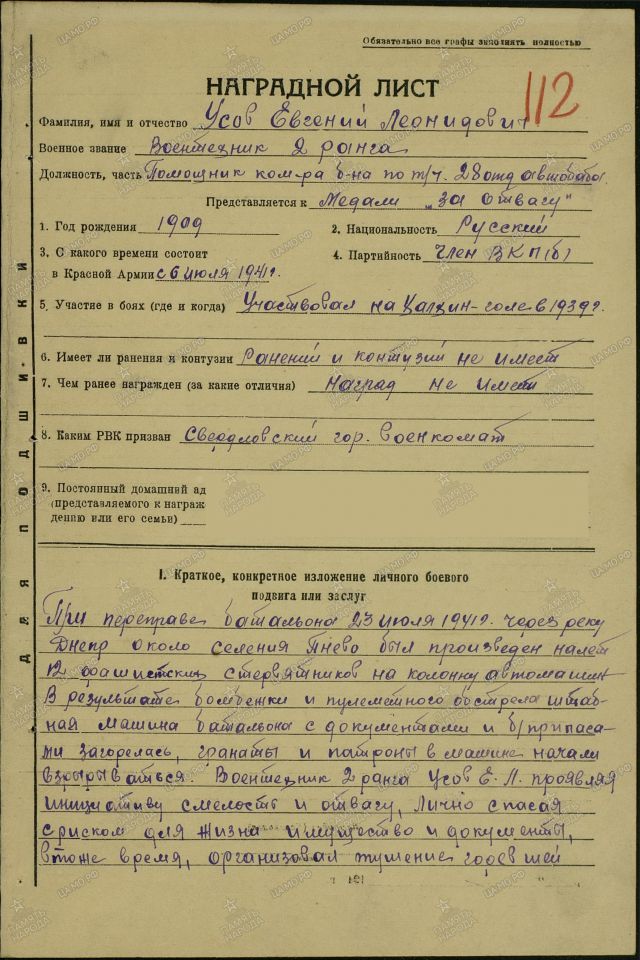 Обязательно все графы заполнять полностью
НАГРАДНОЙ ЛИСТ
112
Фамилия, имя и отчество Усов Евгений Леонидович
Военное звание Воентехник 2 ранга
Должность, часть Помощник ком-ра б-на по т/ч. 28 отд автобата
Представляется к Медали „за отвагу"
1. Год рождения 1909
2. Национальность Русский
3. С какого времени состоит
в Красной Армии с 6 июля 1941 г.
4. Партийность Член ВКП(б)
5. Участие в боях (где и когда) Участвовал на Халхин-голе в 1939 г.
6. Имеет ли ранения и контузии Ранений и контузий не имеет
7. Чем ранее награжден (за какие отличия) Наград не имеет
8. Каким РВК призван Свердловский гор. Военкомат
9. Постоянный домашний ад
(представляемого к награж
дению или его семьи)
ДЛЯ ПОДШИВКИ
I. Краткое, конкретное изложение личного боевого
подвига или заслуг
При переправе батальона 23 июля 1941 г. через реку
Днепр около селения Пнево был произведен налет
12 фашистских стервятников на колонну автомашин
В результате бомбежки и пулеметного обстрела штаб-
ная машина батальона с документами и б/припаса-
ми загорелась, гранаты и патроны в машине начали
взрываться. Воентехник 2 ранга Усов Е. Л. проявляя
инициативу смелость и отвагу, лично спасая
с риском для жизни имущество и документы,
в тоже время, организовал тушение горевшей